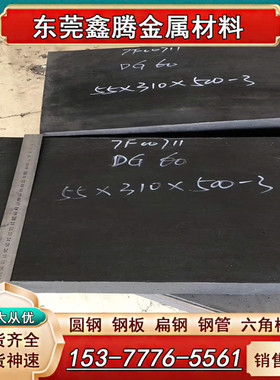 东莞鑫腾金属材料
7F00711
DG 60
55×310×500-3
7F00711
DG 60
55×310×500-3
大从优
圆钢 钢板 扁钢 钢管 六角棒
货神速
153-7776-5561
销售